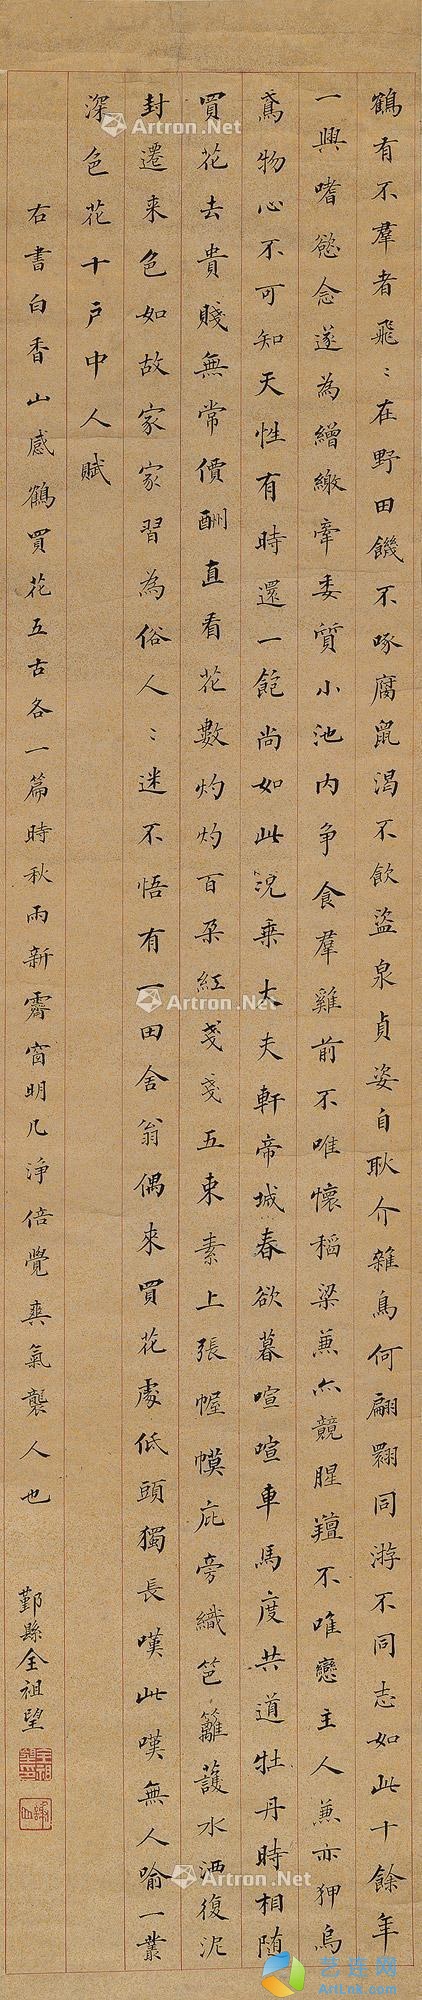 鶴有不羣者飛〻在野田饑不啄腐鼠渴不飲盜泉貞姿自耿介雜鳥何翩翾同游不同志如此十餘年
一興嗜慾念遂為繒繳牽委質小池內爭食羣雞前不唯懷稻粱兼亦競腥羶不唯戀主人兼亦狎烏
鳶物心不可知天性有時還一飽尚如此況乘大夫軒帝城春欲暮喧喧車馬度共道牡丹時相隨
買花去貴賤無常價酬直看花數灼灼百朶紅戔戔五束素上張幄幙庇旁織笆籬護水洒復泥
封遷来色如故家家習為俗人〻迷不悟有一田舍翁偶來買花處低頭獨長嘆此嘆無人喻一叢
深色花十戶中人賦
右書白香山感鶴買花五古各一篇時秋雨新霽窗明几淨倍覺爽氣襲人也
鄞縣全祖望
Artron.Net
Artron.Net
Artron.Net
Artron.Net
Artron.Net
Artron.Net
艺连网
ArtLnk.Com